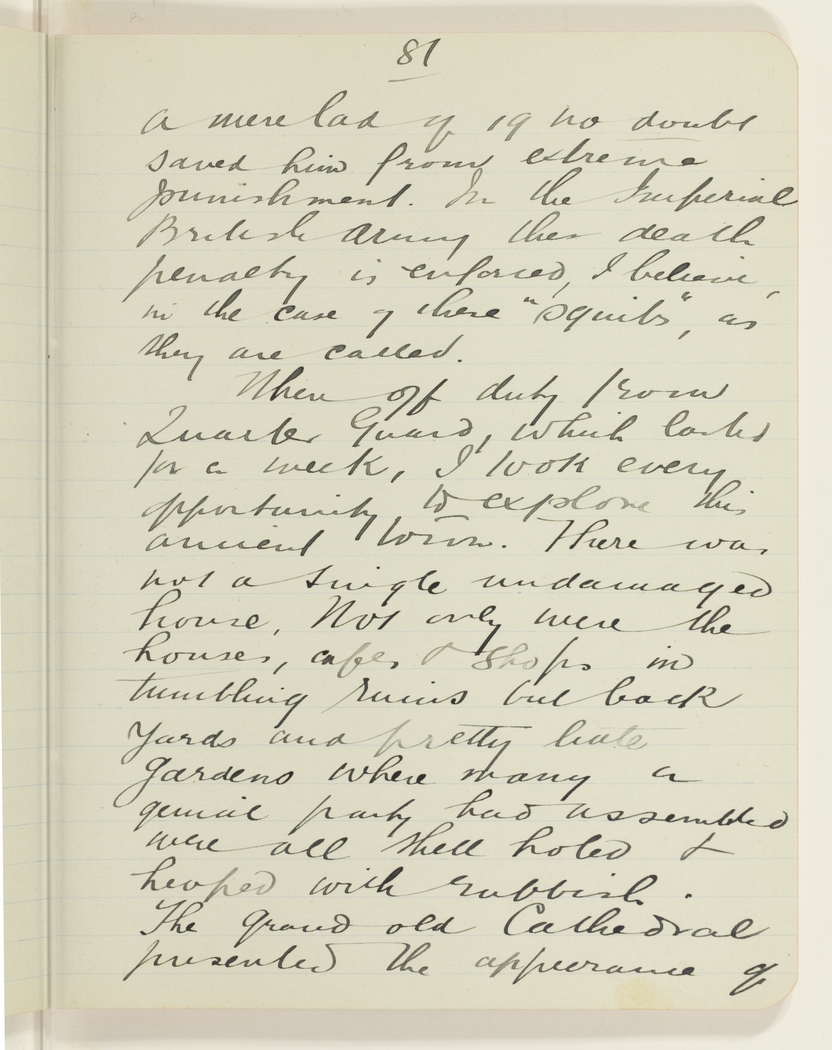 81
a mere lad of 19 no doubt
saved him from extreme
punishment. In the Imperial
British Army the death
penalty is enforced, I believe,
in the case of these "squibs", as
they are called.
When off duty from
Quarter Guard, which lasted
for a week, I took every
opportunity to explore this
ancient town. There was
not a single undamaged
house. Not only were the
houses, cafes & shops in
tumbling ruins but back
yards and pretty little
gardens where many a
genial party had assembled
were all shell holed &
heaped with rubbish.
The grand old Cathedral
presented the appearance of